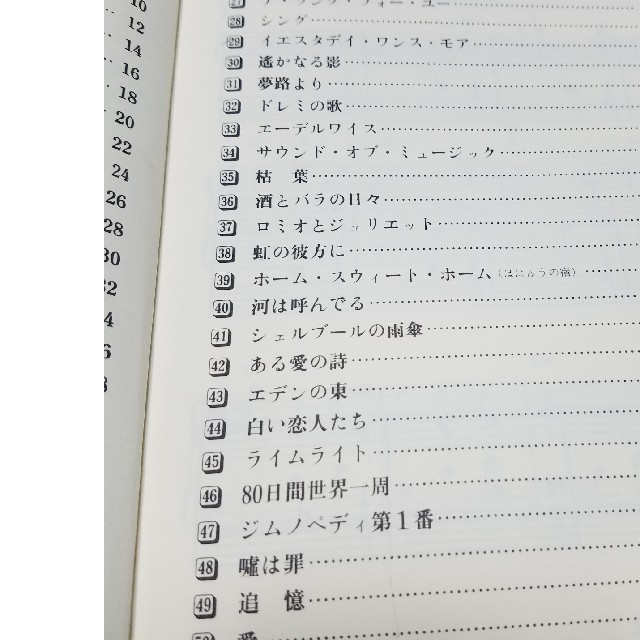 10
12
14
16
18
20
22
24
26
28
30
32
4
6
27 ア・ソング・フォー・ユー
28 シング
29 イエスタデイ・ワンス・モア
30 遙かなる影
31 夢路より
32 ドレミの歌
33 エーデルワイス
34 サウンド・オブ・ミュージック
35 枯 葉
36 酒とバラの日々
37 ロミオとジュリエット
38 虹の彼方に
39 ホーム・スウィート・ホーム(はにゅうの宿)
40 河は呼んでる
41 シェルブールの雨傘
42 ある愛の詩
43 エデンの東
44 白い恋人たち
45 ライムライト
46 80日間世界一周
47 ジムノペディ第1番
48 嘘は罪
49 追 憶
50 愛